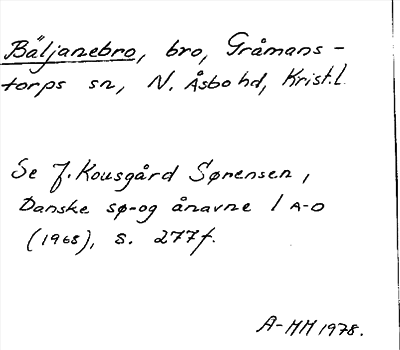 Bäljanebro, bro, Gråmans-
torps sn, N. Åsbo hd, Krist.l.
Se J. Kousgård Sørensen,
Danske sø- og ånavne 1 A-D
(1968), s. 277f.
A-MM 1978.